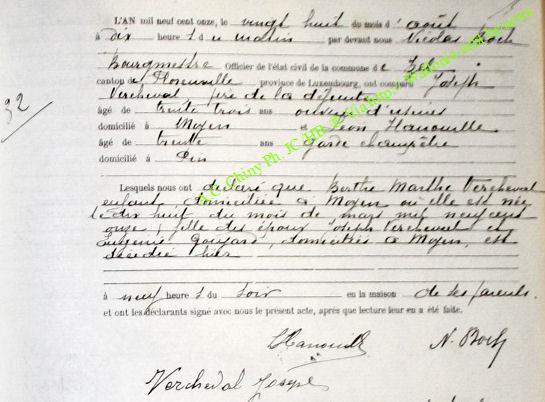 L'AN mil neuf cent onze, le vingt huit du mois d'août
à dix heure s du matin par devant nous Nicolas Boch
Bourgmestre Officier de l'état civil de la commune de
canton de Florenville, province de Luxembourg, ont comparu Joseph
Vercheval père de la défunte
âgé de trente trois ans ouvrier d'usines
domicilié à Moyen et Léon Hanouille
âgé de trente ans garde champêtre
domicilié à Pin
32
Lesquels nous ont déclaré que Berthe Marthe Vercheval
enfant, domiciliée à Moyen où elle est née
le dix huit du mois de mars mil neuf cent
onze, fille des époux Joseph Vercheval et
Eugénie, domiciliés à Moyen, est
décédée hier
à neuf heure s du soir en la maison de ses parents.
et ont les déclarants signé avec nous le présent acte, après que lecture leur en a été faite.
LHanouille N. Boch
Vercheval Joseph
A.C. Chiny Ph. JC HB